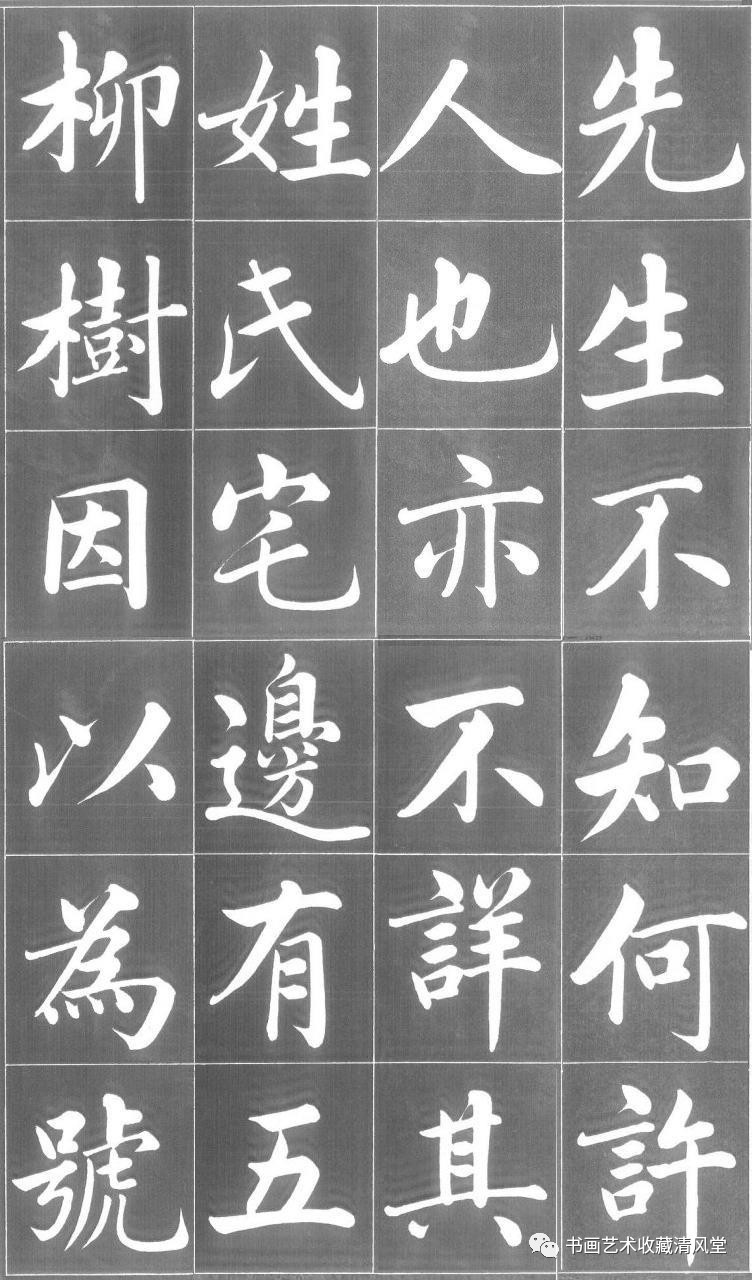 先生不知何許
人也亦不詳其
姓氏宅邊有五
柳樹因以為號
书画艺术收藏清风堂